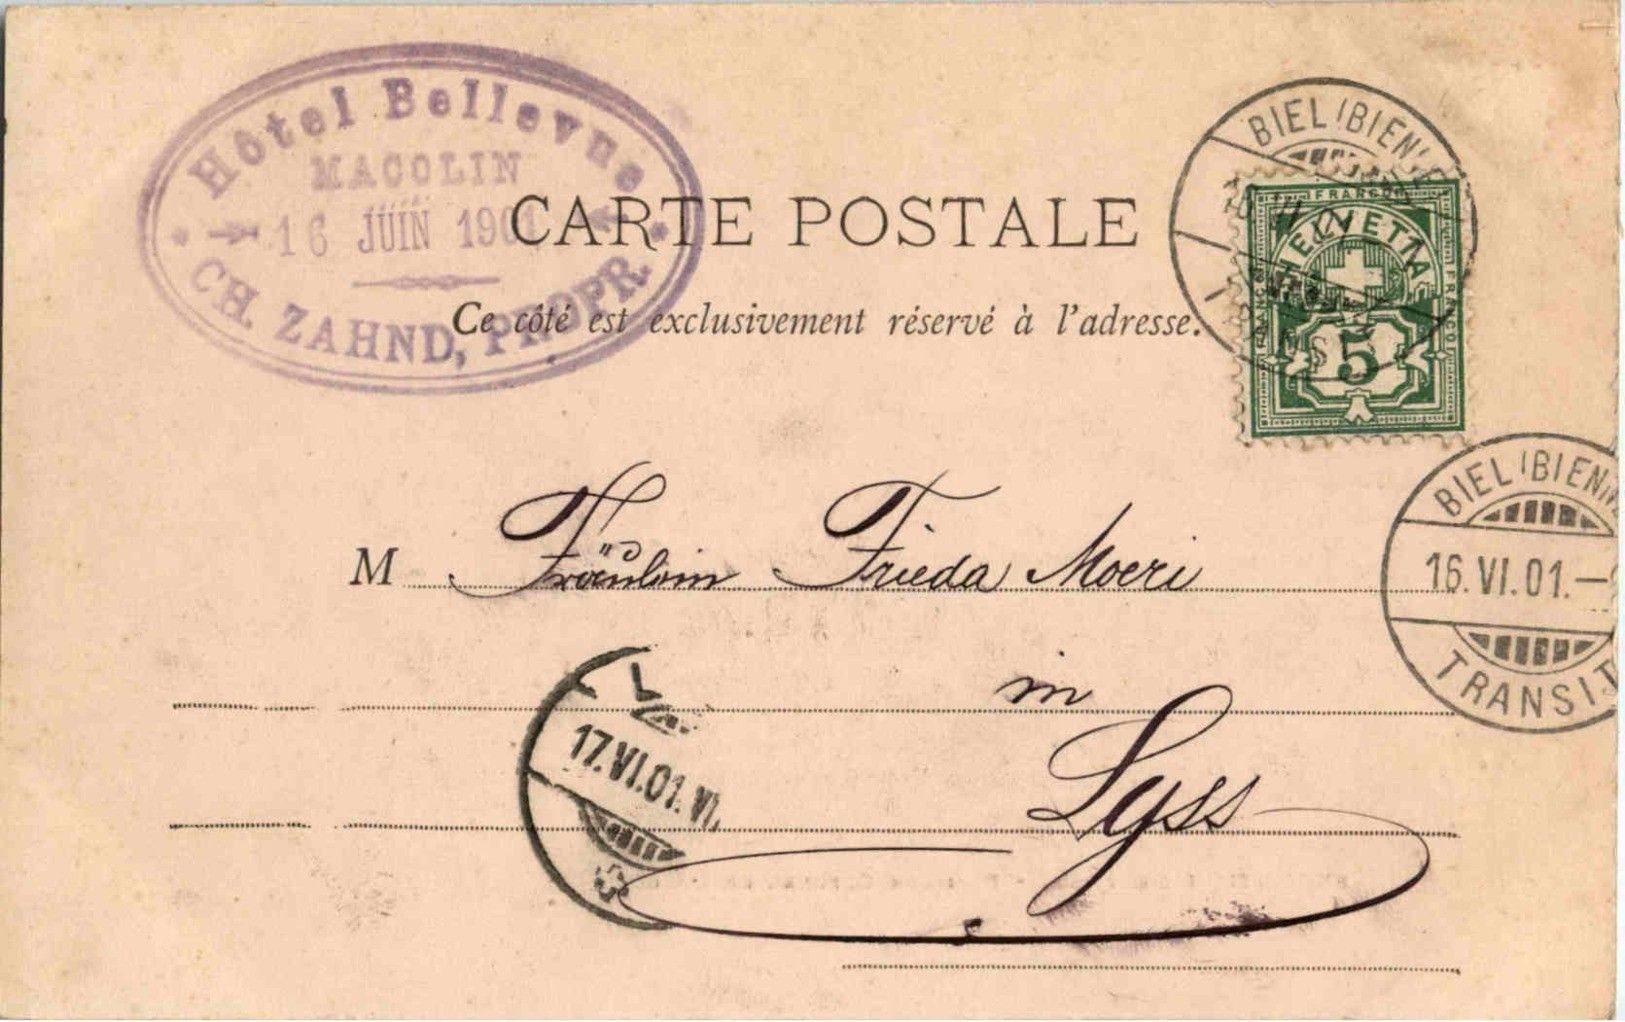 Hôtel Bellevue
MACOLIN
16 JUIN 1901
CH. ZAHND, PROPR.
CARTE POSTALE
Ce côté est exclusivement réservé à l'adresse.
BIEL (BIENNE
FRANCO
HELVETIA
5
BIEL (BIENNE
16.VI.01.–
TRANSIT
M Fräulein Frieda Moeri
in
Lyss
17.VI.01.VI